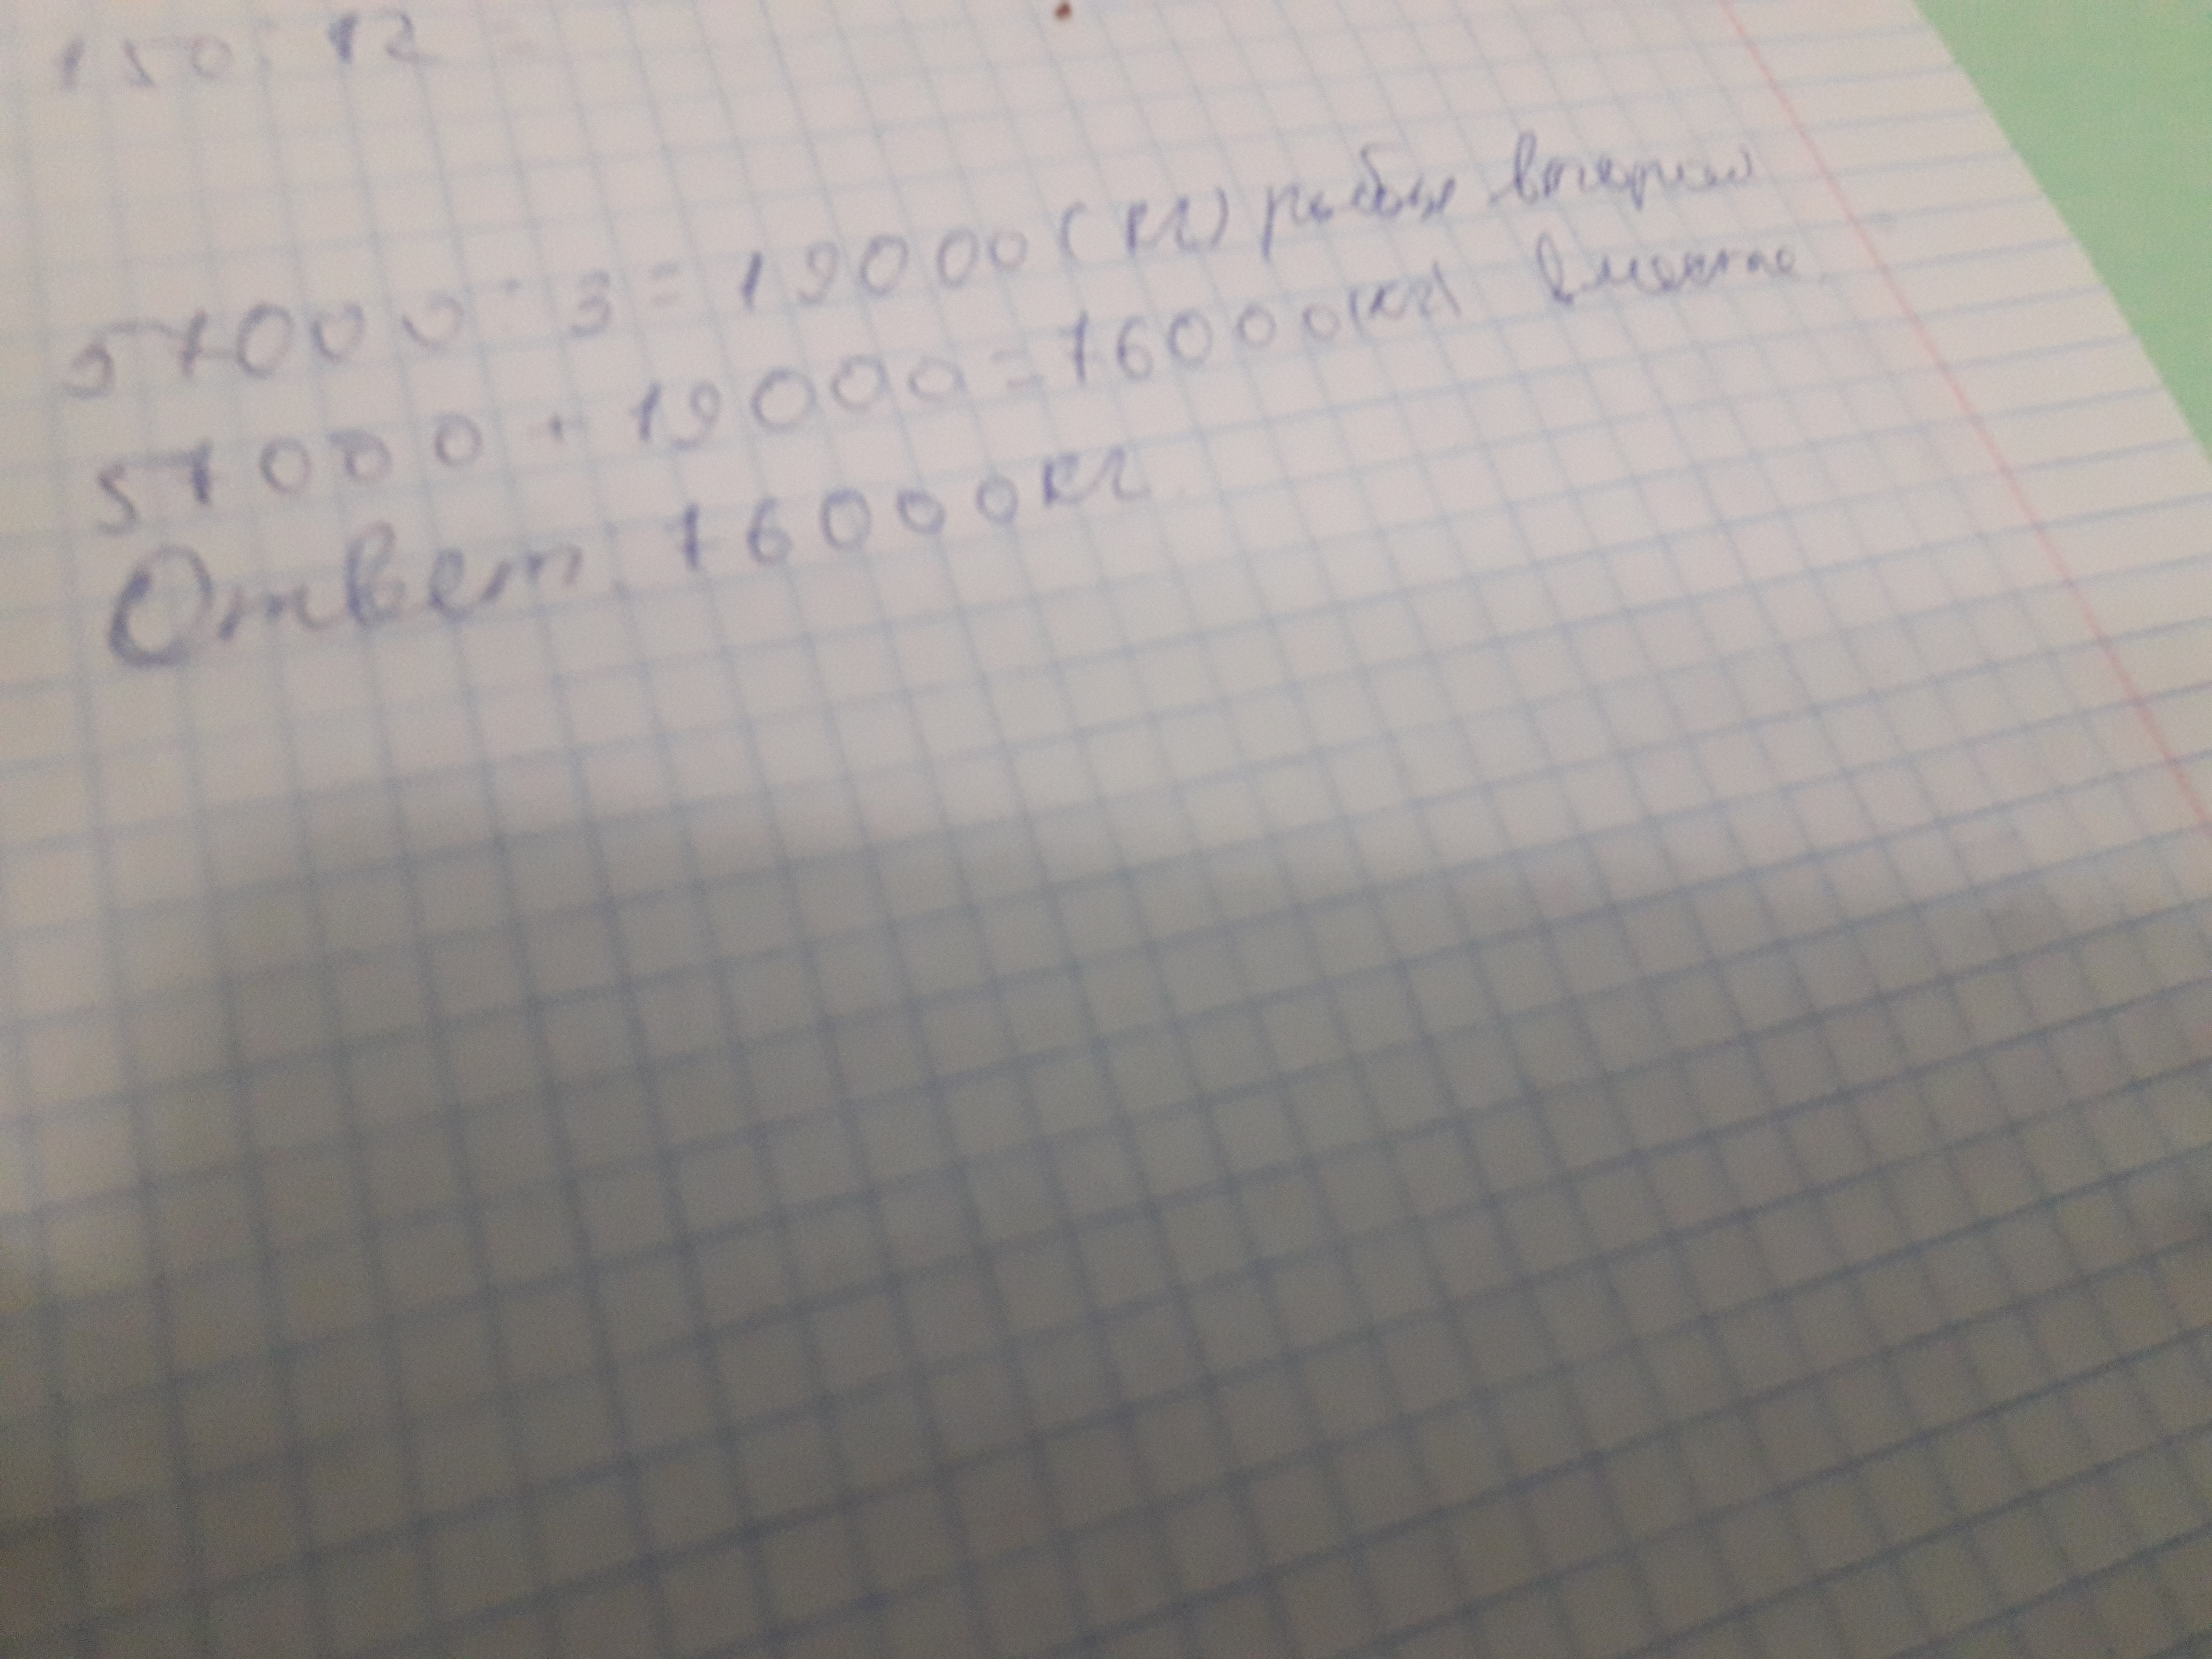 150 : 12 =
57000 : 3 = 19000 (кг) рыбы второй
57000 + 19000 = 76000 (кг) вместе
Ответ. 76000 кг